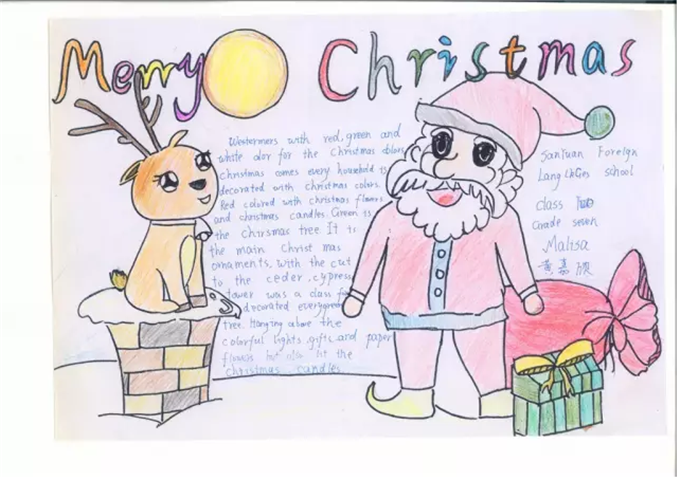 Merry Christmas
Westerners with red, green and
white color for the Christmas colors
christmas comes every household is
decorated with christmas colors.
Red colored with christmas flowers
and christmas candles. Green is
the chirsmas tree. It is
the main Christ mas
ornaments, with the cut
to the ceder, cypress
tower was a class for
decorated evergreen
tree. Hanging above the
colorful lights gifts and paper
flowers but also lit the
christmas candles.
SanYuan Foreign
Languages school
class
Grade seven
Malisa
黄嘉